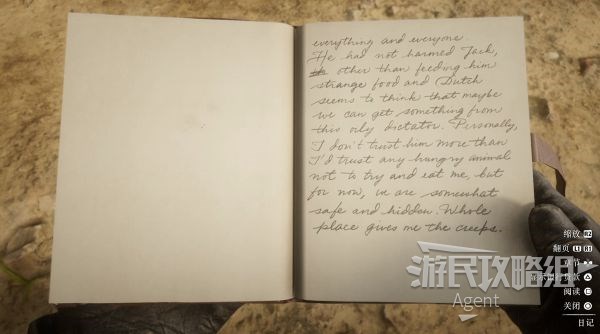 everything and everyone.
He had not harmed Jack,
other than feeding him
strange food and Dutch
seems to think that maybe
we can get something from
this oily dictator. Personally,
I don't trust him more than
I'd trust any hungry animal
not to try and eat me, but
for now, we are somewhat
safe and hidden. Whole
place gives me the creeps.
缩放 R2
翻页 L1 R1
章节
阅读
关闭
日记
游民攻略组
Agent